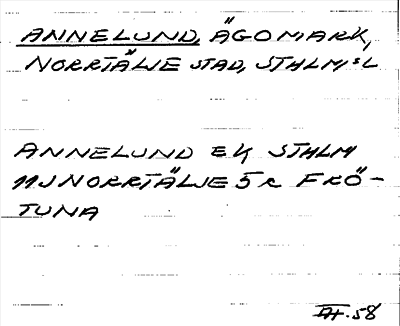 ANNELUND, ÄGOMARK,
NORRTÄLJE STAD, STHLM:S L
ANNELUND EK STHLM
11J NORRTÄLJE 5 R FRÖ-
TUNA